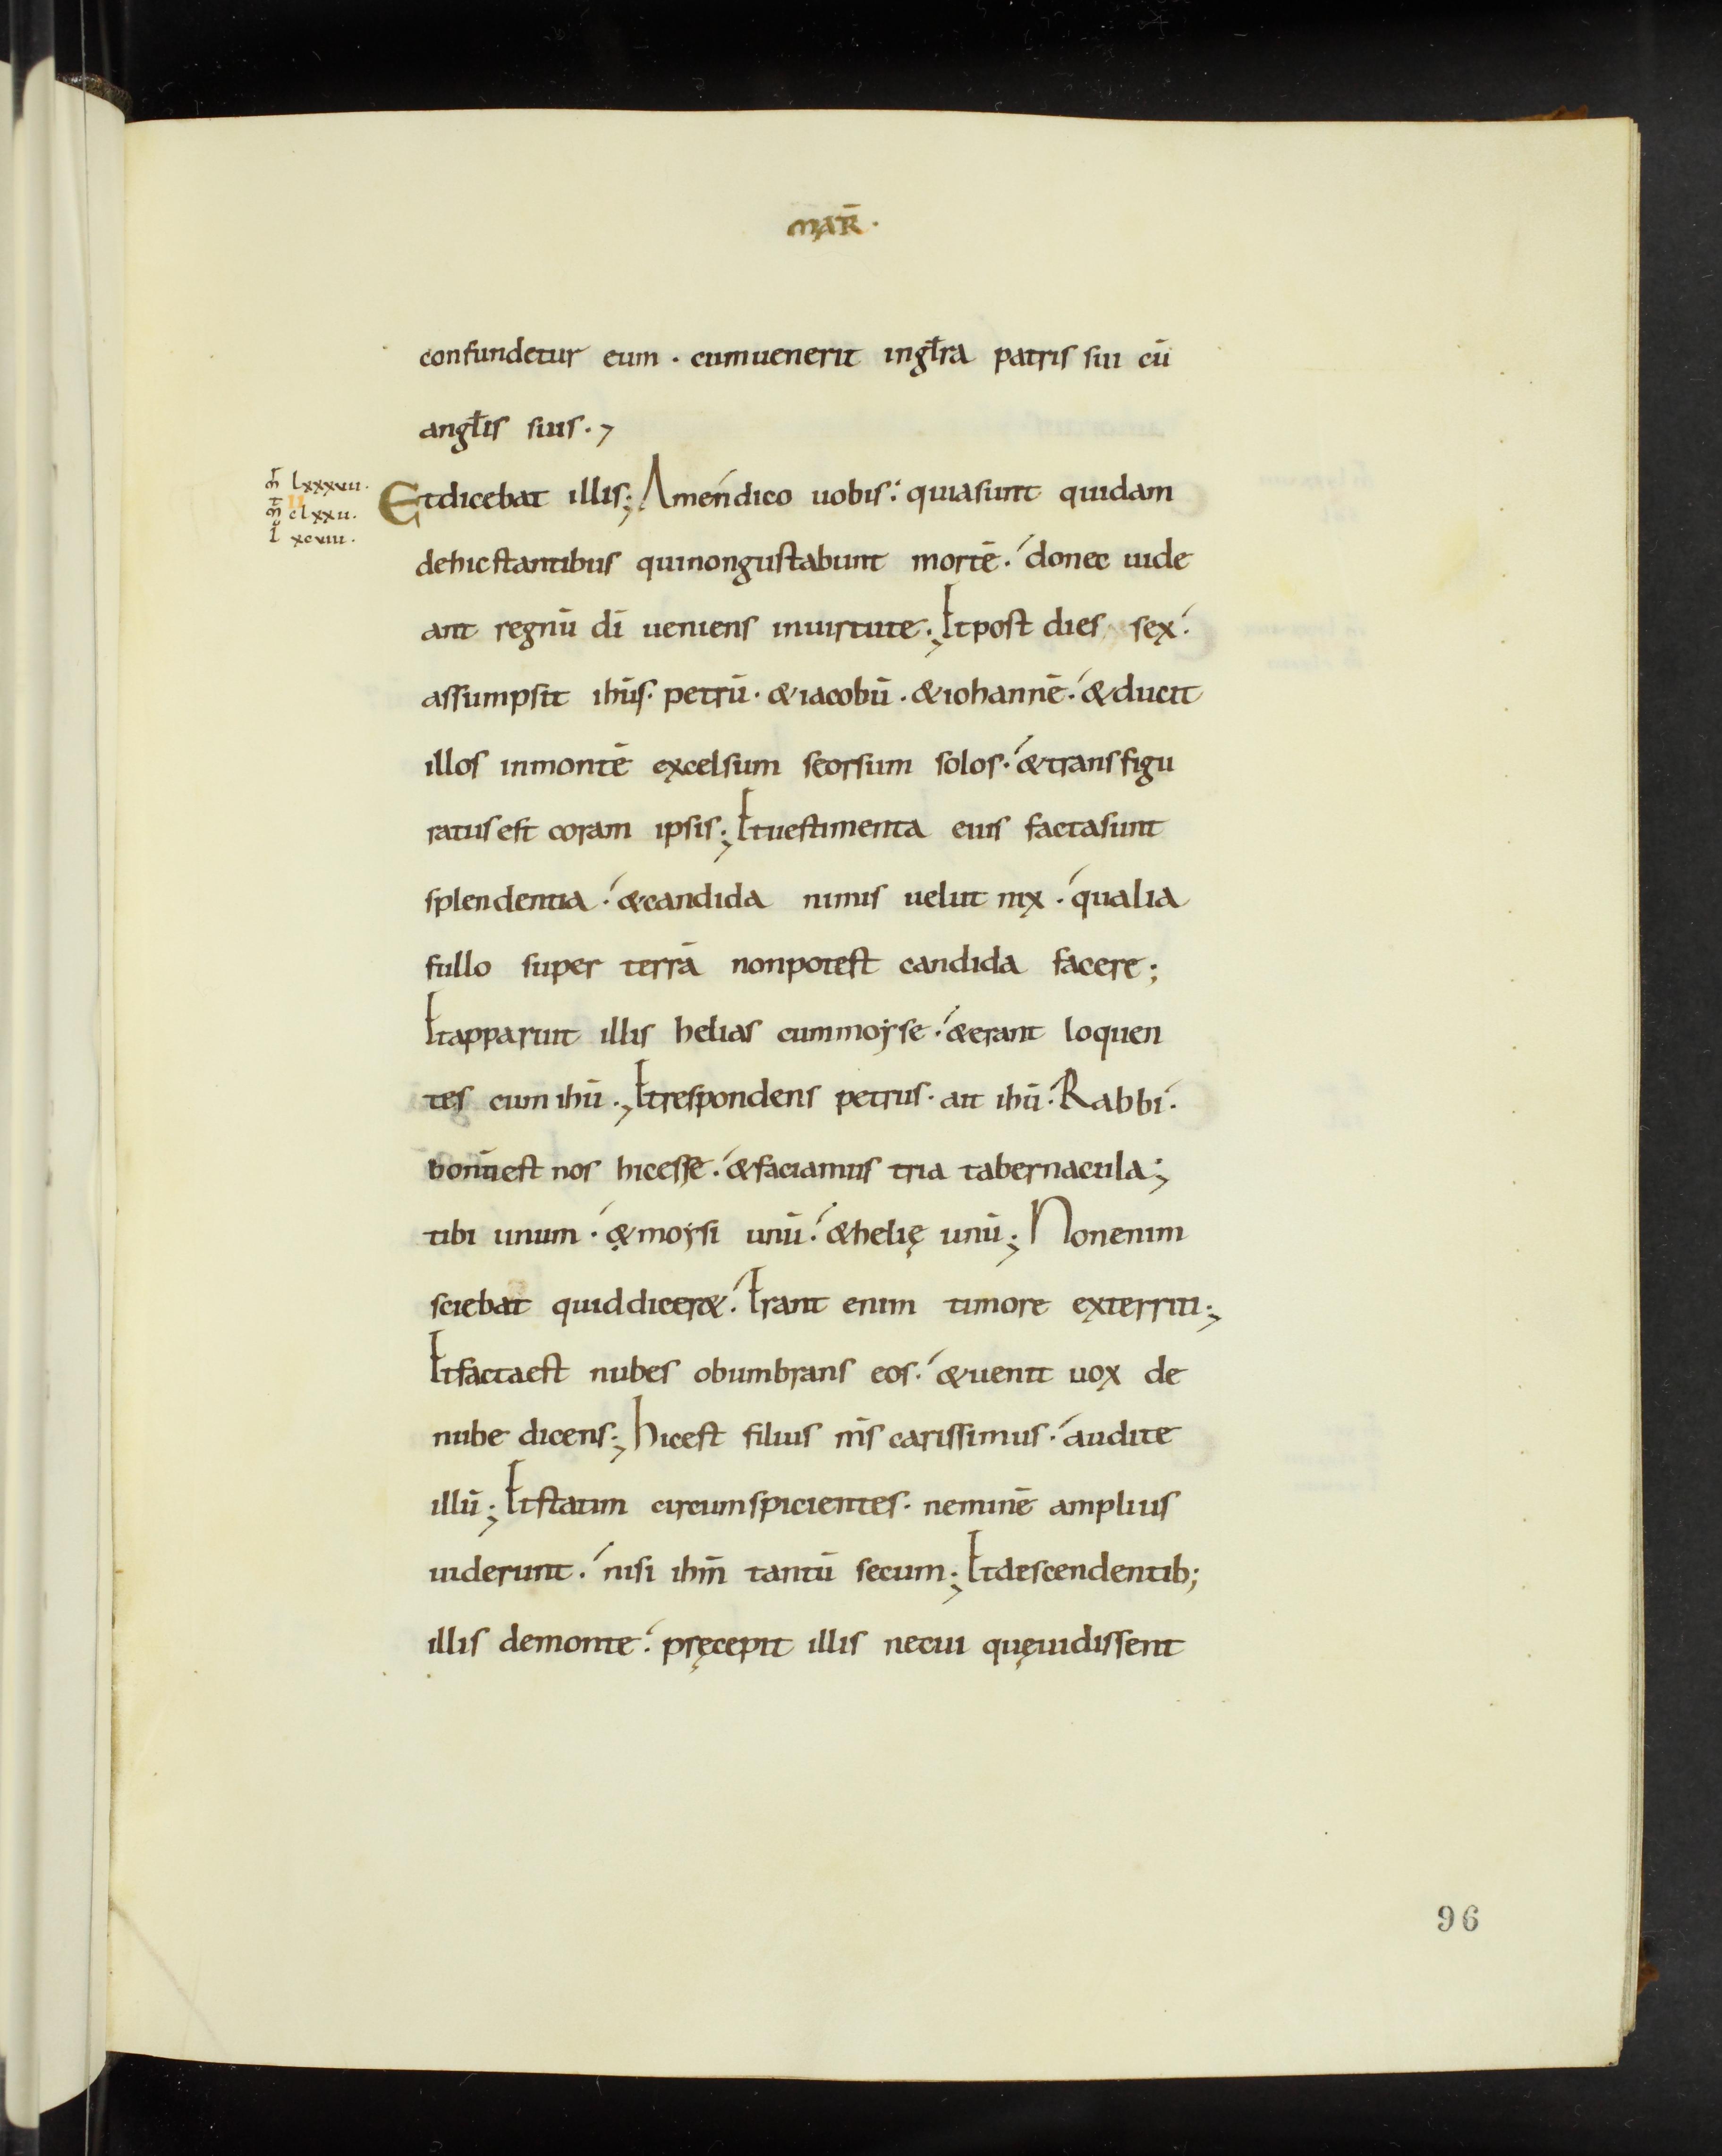 MAR̄.
confundetur eum. cumuenerit ingłra patris sui cū
angłis suis.,
m̄ lxxxvii.
II
m̄ clxxii.
l̄ xcviii.
Etdicebat illis; Amendico uobis: quiasunt quidam
dehicstantibus quinongustabunt mortē. donec uide
ant regnū dī ueniens inuirtute; Etpost dies sex.
assumpsit ihūs. petrū. &iacobū. &iohannē. &ducit
illos inmontē excelsum seorsum solos. &transfigu
ratusest coram ipsis; Etuestimenta eius factasunt
splendentia. &candida nimis uelut nix. qualia
fullo super terrā nonpotest candida facere;
Etapparuit illis helias cummoẏse. &erant loquen
tes cum ihū; Etrespondens petrus. ait ihū. Rabbi.
bonūest nos hicesse. &faciamus tria tabernacula;
tibi unum. &moẏsi unū. &helię unū; Nonenim
sciebat quiddicer&. Erant enim timore exterriti;
Etfactaest nubes obumbrans eos. &uenit uox de
nube dicens; Hicest filius m̄s carissimus. audite
illū; Etstatim circumspicientes. neminē amplius
uiderunt. nisi ihm̄ tantū secum; Etdescendentib;
illis demonte. pręcepit illis necui quęuidissent
96